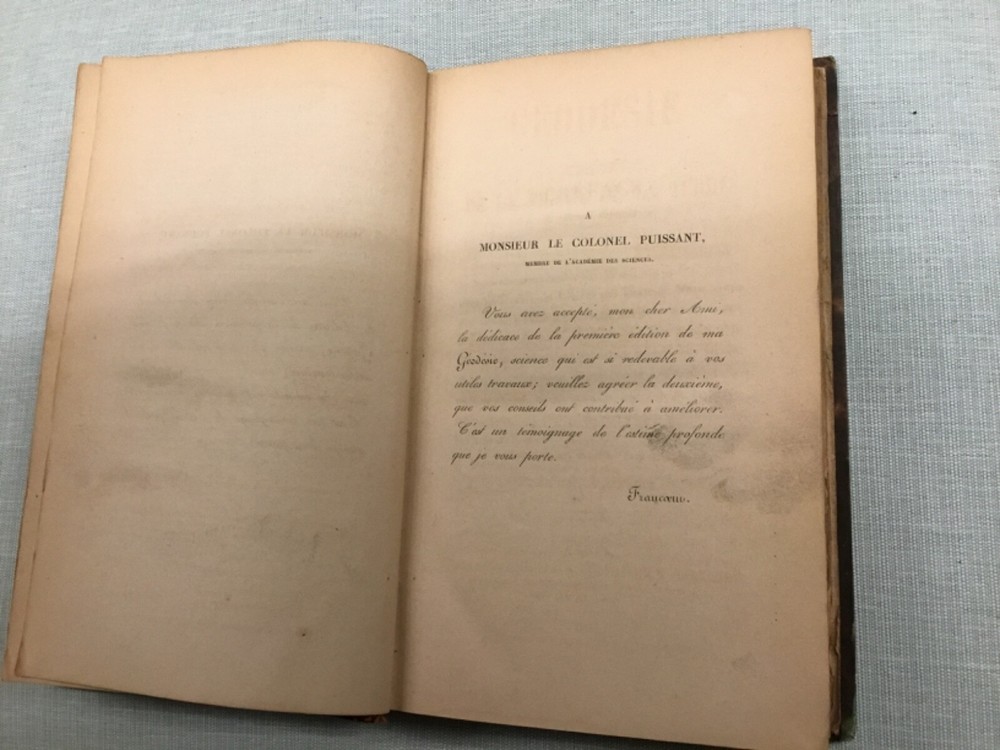 A
MONSIEUR LE COLONEL PUISSANT,
MEMBRE DE L'ACADÉMIE DES SCIENCES.
Vous avez accepté, mon cher Ami,
la dédicace de la première édition de ma
Géodésie, science qui est si redevable à vos
utiles travaux; veuillez agréer la deuxième,
que vos conseils ont contribué à améliorer.
C'est un témoignage de l'estime profonde
que je vous porte.
Francœur.